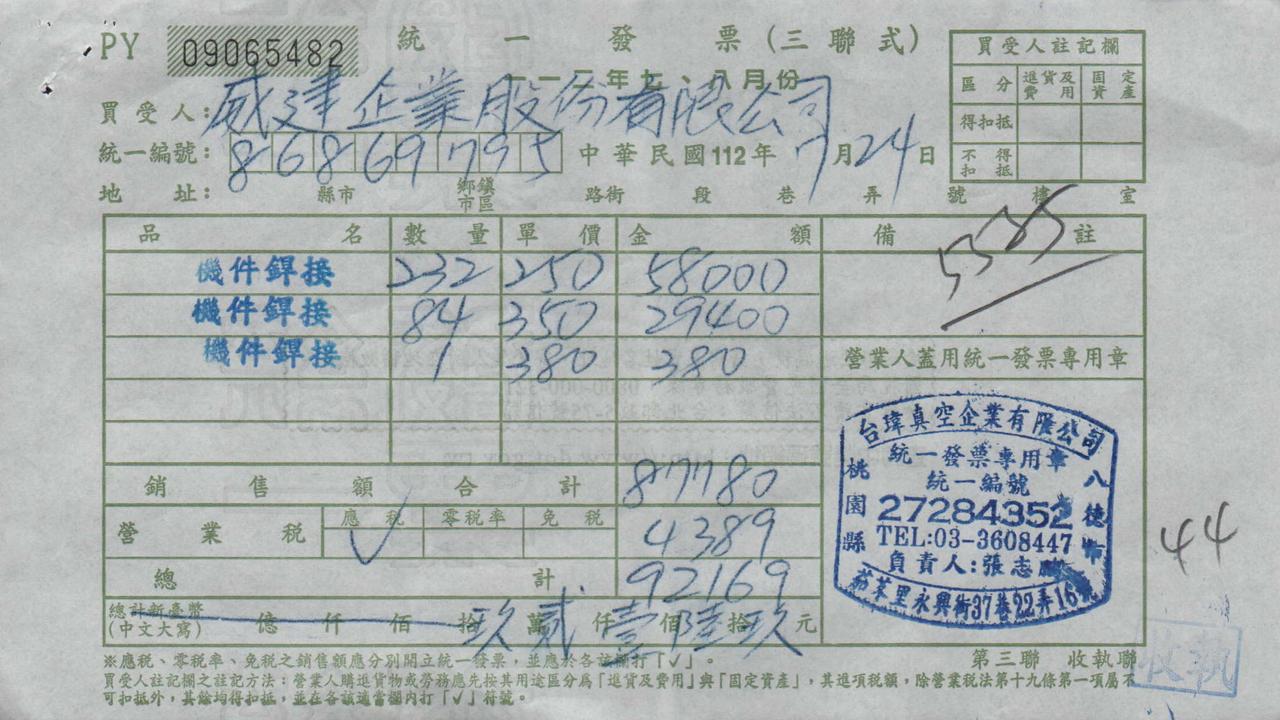 PY 09065482 統一發票(三聯式)
一一二年七、八月份
買受人：威建企業股份有限公司
統一編號：86869795 中華民國112年7月24日
地址： 縣市 鄉鎮市區 路街 段 巷 弄 號 樓 室
買受人註記欄
區分 進貨及費用 固定資產
得扣抵
不得扣抵
品名 數量 單價 金額 備註
機件銲接 232 250 58000
機件銲接 84 350 29400
機件銲接 1 380 380
5585
營業人蓋用統一發票專用章
銷售額合計 87780
營業稅 應稅 ✓ 零稅率 免稅 4389
總計 92169
總計新臺幣
(中文大寫) 億 仟 佰 拾 玖 萬 貳 仟 壹 佰 陸 拾 玖 元
台瑋真空企業有限公司
統一發票專用章
統一編號
27284352
TEL:03-3608447
負責人:張志
桃園縣八德市
茄苳里永興街37巷22弄16號
44
※應稅、零稅率、免稅之銷售額應分別開立統一發票，並應於各該欄打「✓」。
第三聯 收執聯
買受人註記欄之註記方法：營業人購進貨物或勞務應先按其用途區分為「進貨及費用」與「固定資產」，其進項稅額，除營業稅法第十九條第一項屬不
可扣抵外，其餘均得扣抵，並在各該適當欄內打「✓」符號。
收執